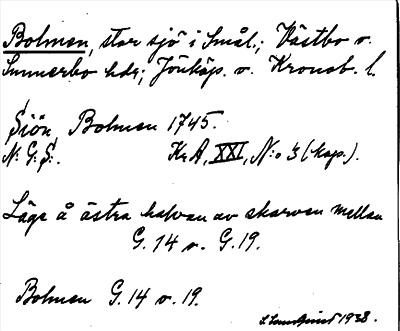 Bolmen, stor sjö i Smål.; Västbo o.
Sunnerbo hdr; Jönköp. o. Kronob. l.
Siön Bolmen 1745.
N: G: S:. KrA, XXI, N:o 3 (kop.).
Läge å östra halvan av skarven mellan
G. 14 o. G. 19.
Bolmen G. 14 o. 19.
1938.